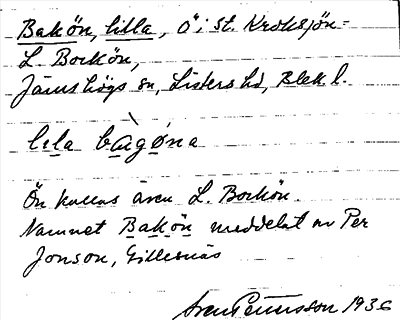 Bakön, lilla, ö i St. Kroksjön =
L. Bockön,
Jämshögs sn, Listers hd, Blek. l.
lila bàgǿna
Ön kallas även L. Bockön.
Namnet Bakön meddelat av Per
Jonson, Gillesnäs
Sven Pettersson 1936